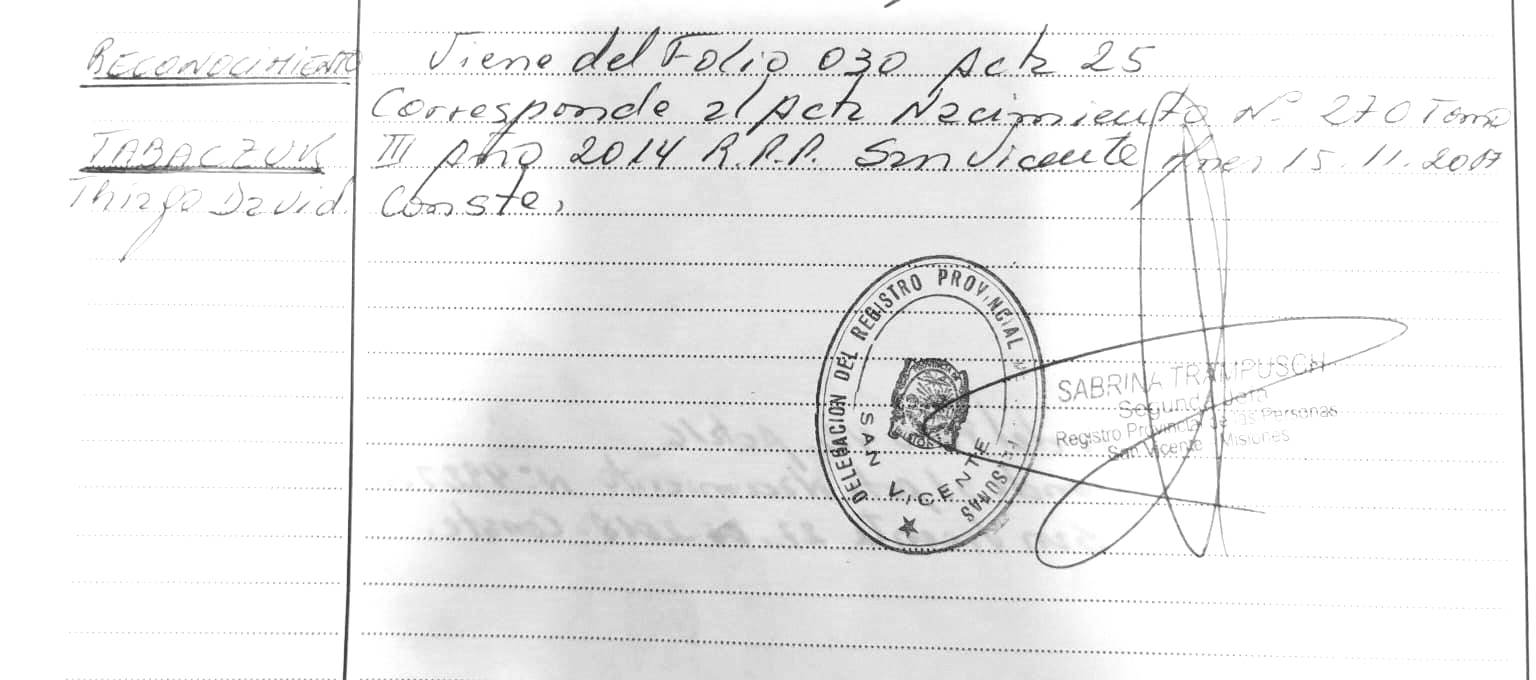 RECONOCIMIENTO
TABACZUK
Thiago David.
Viene del Folio 030 Acta 25
Corresponde al Acta Nacimiento Nº 270 Tomo
III Año 2014 R.P.P. San Vicente Mnes 15.11.2017
Conste.
DELEGACION DEL REGISTRO PROVINCIAL DE LAS PERSONAS
SAN VICENTE
SABRINA TRAMPUSCH
Segunda Jefa
Registro Provincial de las Personas
San Vicente Misiones